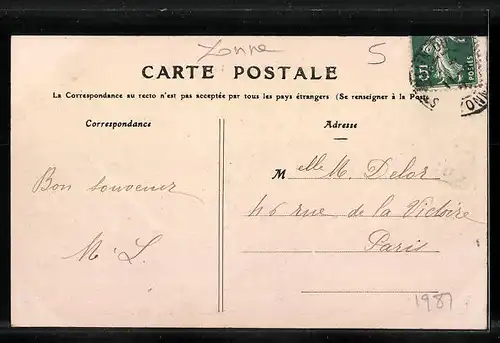 Yonne
5
CARTE POSTALE
La Correspondance au recto n'est pas acceptée par tous les pays étrangers (Se renseigner à la Poste
Correspondance
Adresse
Bon souvenir
M. L.
Melle M. Delor
46 rue de la Victoire
Paris
1987
5c
POSTES